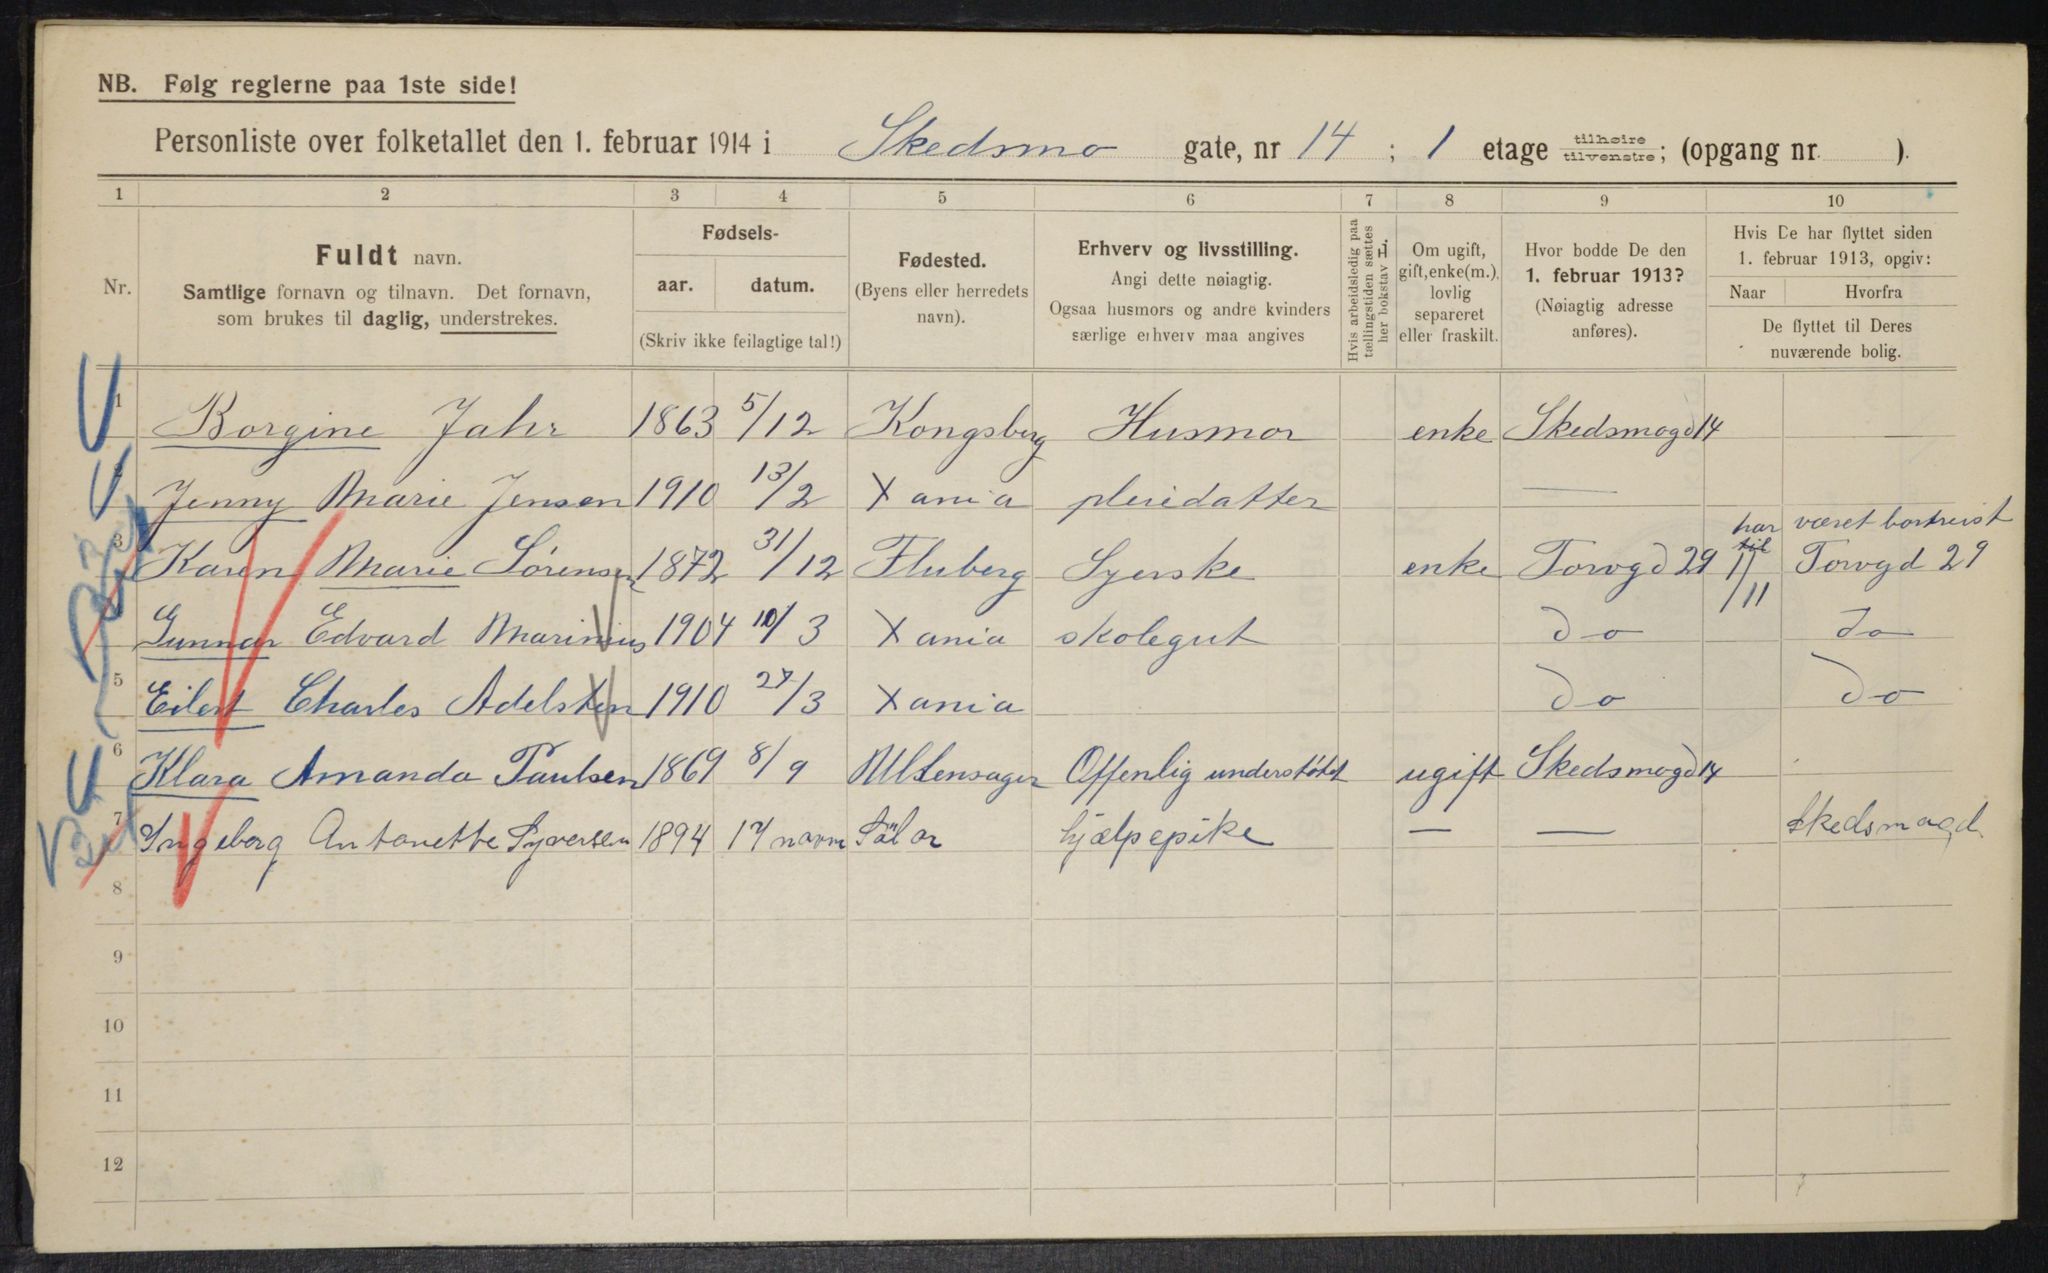 NB. Følg reglerne paa 1ste side!
Personliste over folketallet den 1. februar 1914 i Skedsmo gate, nr 14 ; 1 etage tilhøire tilvenstre; (opgang nr. ).
1 2 3 4 5 6 7 8 9 10
Nr.
Fuldt navn.
Samtlige fornavn og tilnavn. Det fornavn,
som brukes til daglig, understrekes.
Fødsels-
aar. datum.
(Skriv ikke feilagtige tal!)
Fødested.
(Byens eller herredets
navn).
Erhverv og livsstilling.
Angi dette nøiagtig.
Ogsaa husmors og andre kvinders
særlige erhverv maa angives
Hvis arbeidsledig paa
tællingstiden sættes
her bokstav L.
Om ugift,
gift, enke(m.),
lovlig
separeret
eller fraskilt.
Hvor bodde De den
1. februar 1913?
(Nøiagtig adresse
anføres).
Hvis De har flyttet siden
1. februar 1913, opgiv:
Naar Hvorfra
De flyttet til Deres
nuværende bolig.
1 Borgine Jahr 1863 5/12 Kongsberg Husmor enke Skedsmogd 14 —
Jenny Marie Jensen 1910 13/2 Xania pleiedatter —
har været bortreist
3 Karen Marie Sørensen 1872 31/12 Fluberg Syerske enke Torvgd 29 til 11/11 Torvgd 29
Gunnar Edvard Marinius 1904 10/3 Xania skolegut do do
5 Eilert Charles Adelsten 1910 27/3 Xania do do
6 Klara Amanda Paulsen 1869 8/9 Ullensager Offenlig understøtet ugift Skedsmogd 14
7 Ingeborg Antonette Syversen 1894 17 novm Sölør hjælpepike — — Skedsmogd
8
9
10
11
12